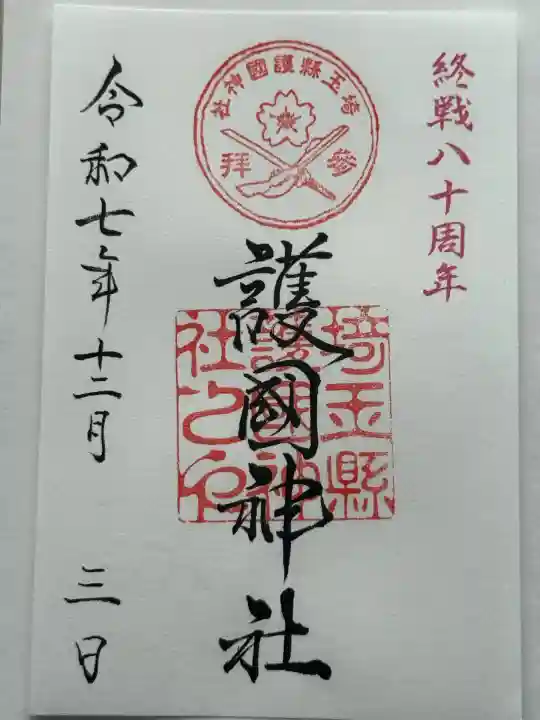 終戦八十周年
埼玉縣護國神社
參拜
護國神社
埼玉縣
護國神
社之印
令和七年十二月 三日